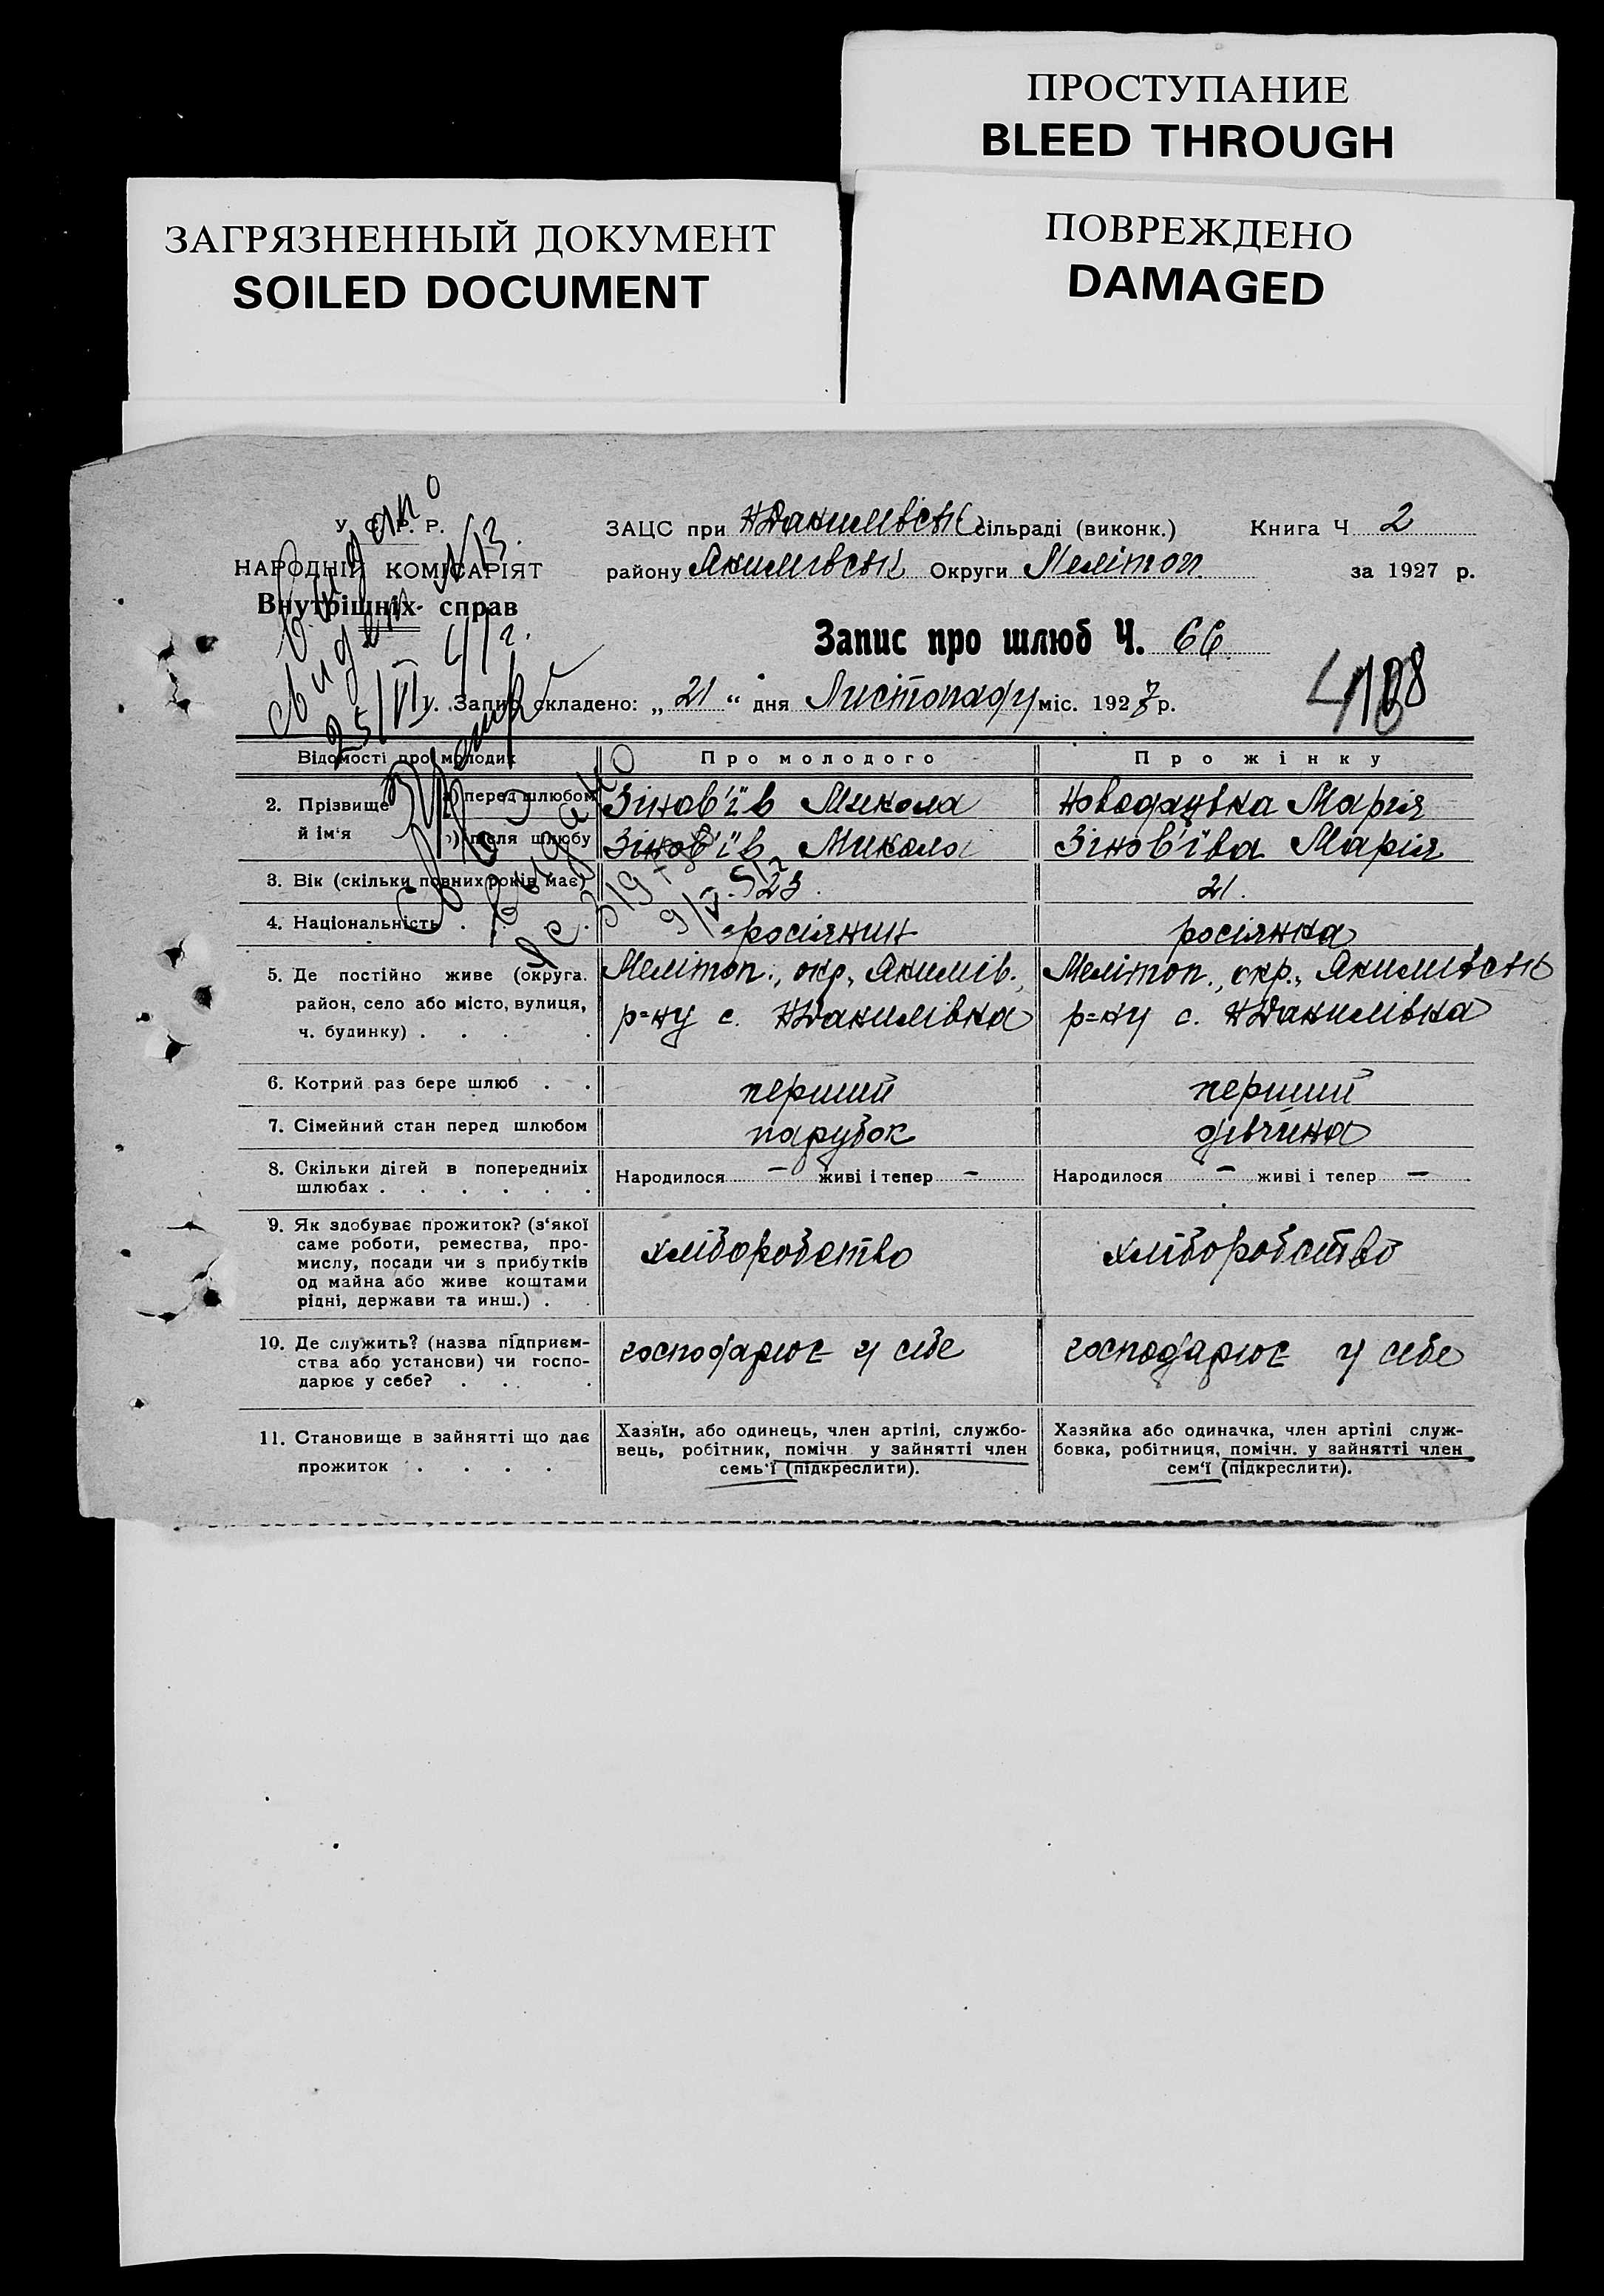 ПРОСТУПАНИЕ
BLEED THROUGH
ЗАГРЯЗНЕННЫЙ ДОКУМЕНТ
SOILED DOCUMENT
ПОВРЕЖДЕНО
DAMAGED
У. С. Р. Р.
НАРОДНІЙ КОМІСАРІЯТ
Внутрішніх справ
ЗАЦС при НДанилівськ сільраді (виконк.) Книга Ч 2
району Якимівськ Округи Мелітоп. за 1927 р.
Запис про шлюб Ч. 66
Запис складено: „ 21 “ дня Листопаду міс. 1927 р.
Відомості про молодих
Про молодого
Про жінку
2. Прізвище й ім'я
а) перед шлюбом Зінов'їв Микола Новодацька Марія
б) після шлюбу Зінов'їв Микола Зінов'їва Марія
3. Вік (скільки повних років має) 23. 21.
4. Національність . . росіянин росіянка
5. Де постійно живе (округа. район, село або місто, вулиця, ч. будинку) . . . .
Мелітоп., окр., Якимів.,
р=ну с. НДанилівка
Мелітоп., окр., Якимівськ
р=ну с. НДанилівка
6. Котрий раз бере шлюб . . перший перший
7. Сімейний стан перед шлюбом парубок дівчина
8. Скільки дітей в попередниіх шлюбах . . . . . .
Народилося – живі і тепер –
Народилося – живі і тепер –
9. Як здобуває прожиток? (з'якої
саме роботи, ремества, про-
мислу, посади чи з прибутків
од майна або живе коштами
рідні, держави та инш.) . .
хліборобство
хліборобство
10. Де служить? (назва підприєм-
ства або установи) чи госпо-
дарює у себе? . . .
господарює у себе
господарює у себе
11. Становище в зайнятті що дає
прожиток . . . .
Хазяїн, або одинець, член артілі, службо-
вець, робітник, помічн. у зайнятті член
семь'ї (підкреслити).
Хазяйка або одиначка, член артілі служ-
бовка, робітниця, помічн. у зайнятті член
сем'ї (підкреслити).